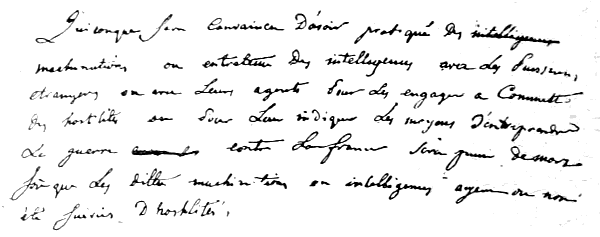 Quiconque sera convaincu D'avoir pratiqué des intelligences
machinations ou entretenu Des intelligences avec Les Puissances
etrangeres ou avec Leurs agents Pour Les engager a Commettre
des hostilités ou Pour Leur indiquer Les moyens d'entreprendre
La guerre contre La france Sera puni de mort
soit que Les dittes machinations ou intelligences ayent ou non
été suivies D'hostilités,